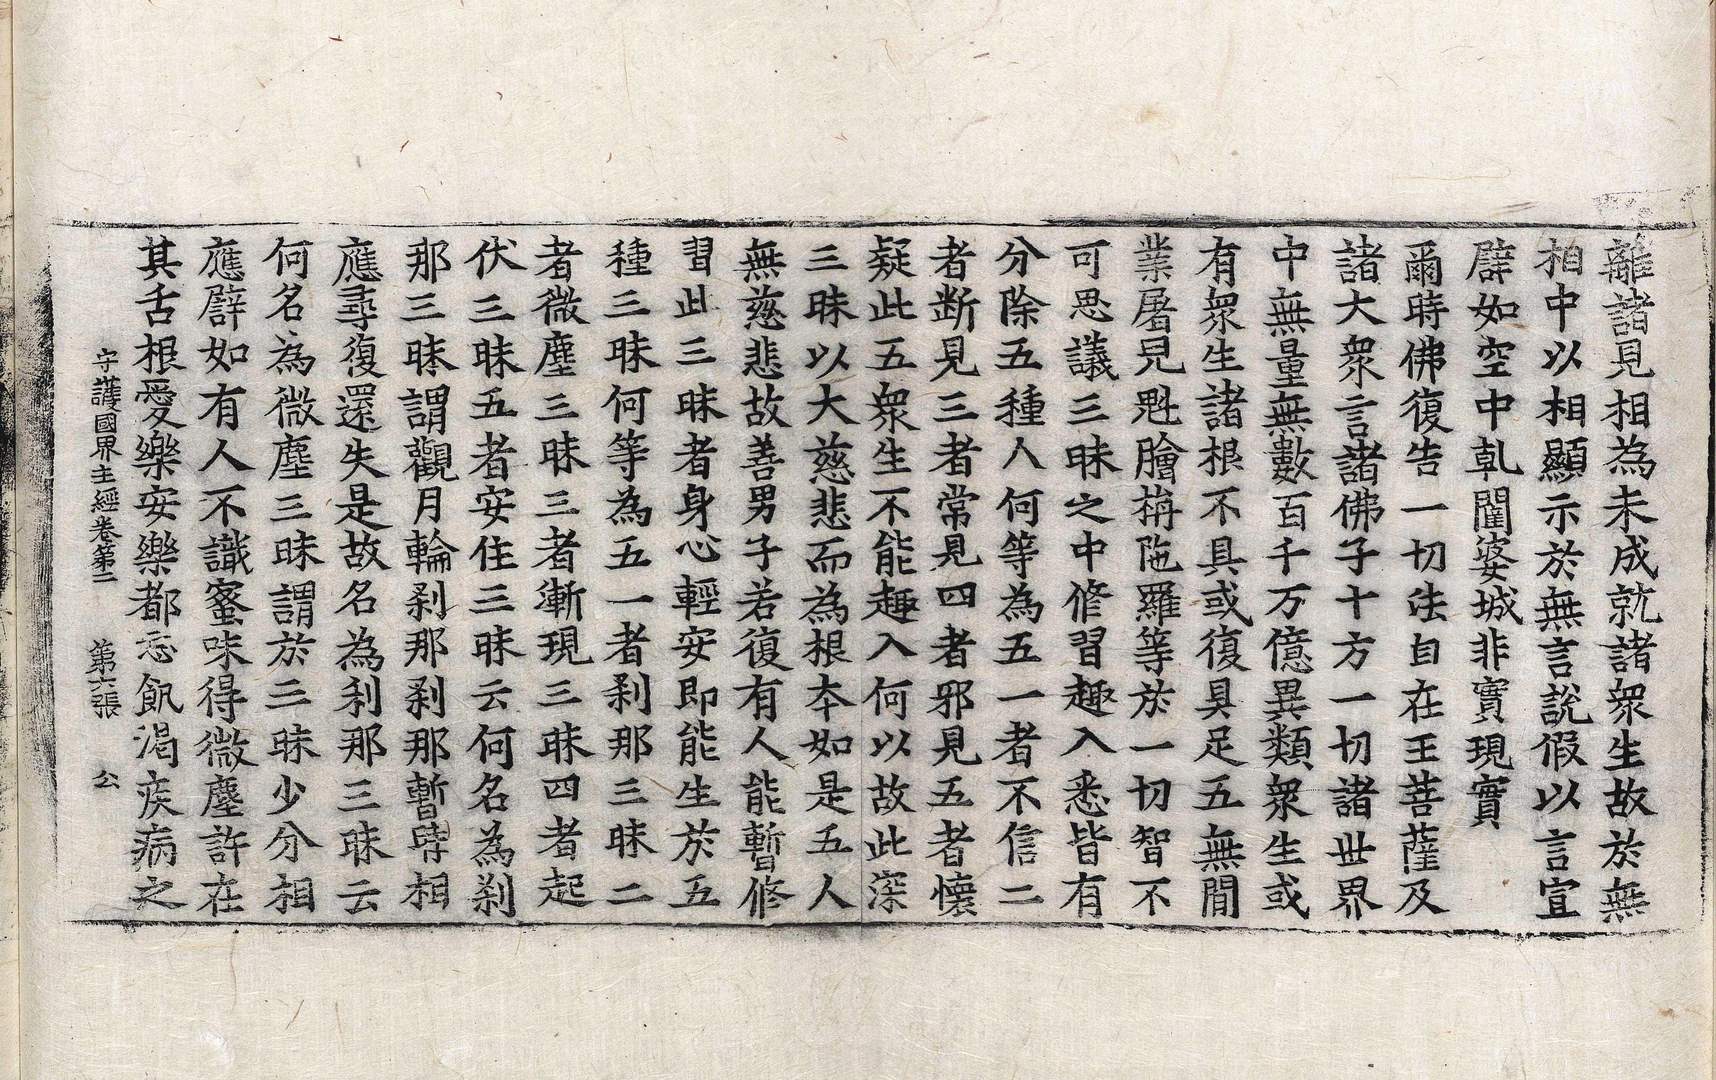 離諸見相為未成就諸衆生故於無
相中以相顯示於無言說假以言宣
譬如空中乹闥婆城非實現實
爾時佛復告一切法自在王菩薩及
諸大衆言諸佛子十方一切諸世界
中無量無數百千万億異類衆生或
有衆生諸根不具或復具足五無間
業屠兒魁膾栴陁羅等於一切智不
可思議三昧之中修習趣入悉皆有
分除五種人何等為五一者不信二
者断見三者常見四者邪見五者懷
疑此五衆生不能趣入何以故此深
三昧以大慈悲而為根本如是五人
無慈悲故善男子若復有人能暫修
習此三昧者身心輕安即能生於五
種三昧何等為五一者剎那三昧二
者微塵三昧三者漸現三昧四者起
伏三昧五者安住三昧云何名為剎
那三昧謂觀月輪剎那剎那暫時相
應尋復還失是故名為剎那三昧云
何名為微塵三昧謂於三昧少分相
應譬如有人不識蜜味得微塵許在
其舌根愛樂安樂都忘飢渴疾病之
守護國界主經卷第二 第六張 公